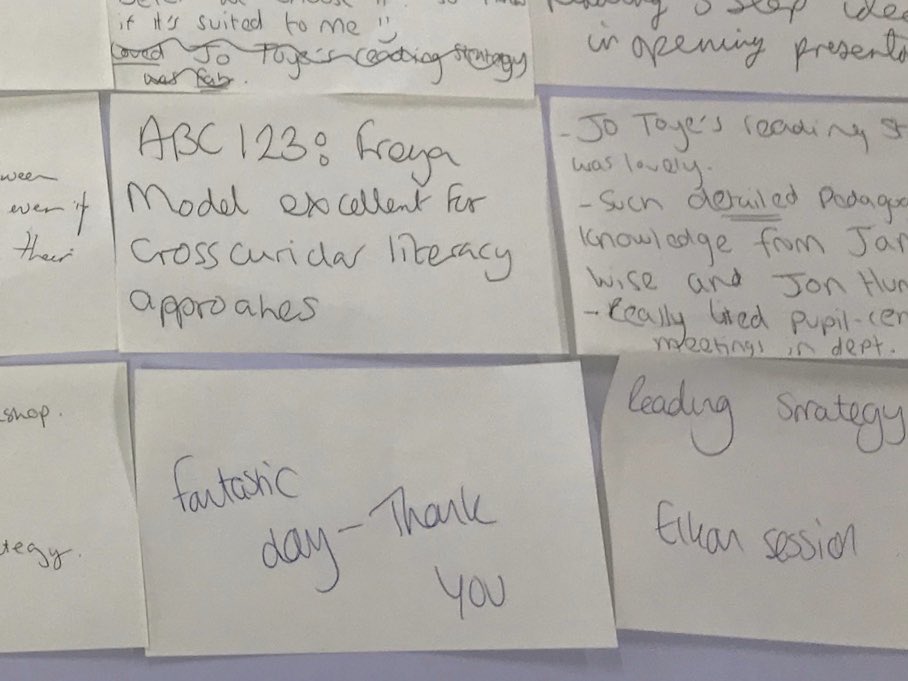 if it's suited to me !!
Loved Jo Toye's reading strategy
was fab.
5 step idea
in opening
ween
even if
their
ABC 123: Freya
Model excellent for
Cross curidar literacy
approahes
- Jo Toye's reading
was lovely.
- Such detailed
knowledge from
Wise and Jon
- Really liked pupil-cen
meetings in dept.
shop.
tegy.
fantastic
day - Thank
YOU
Reading Strategy
Elkan session